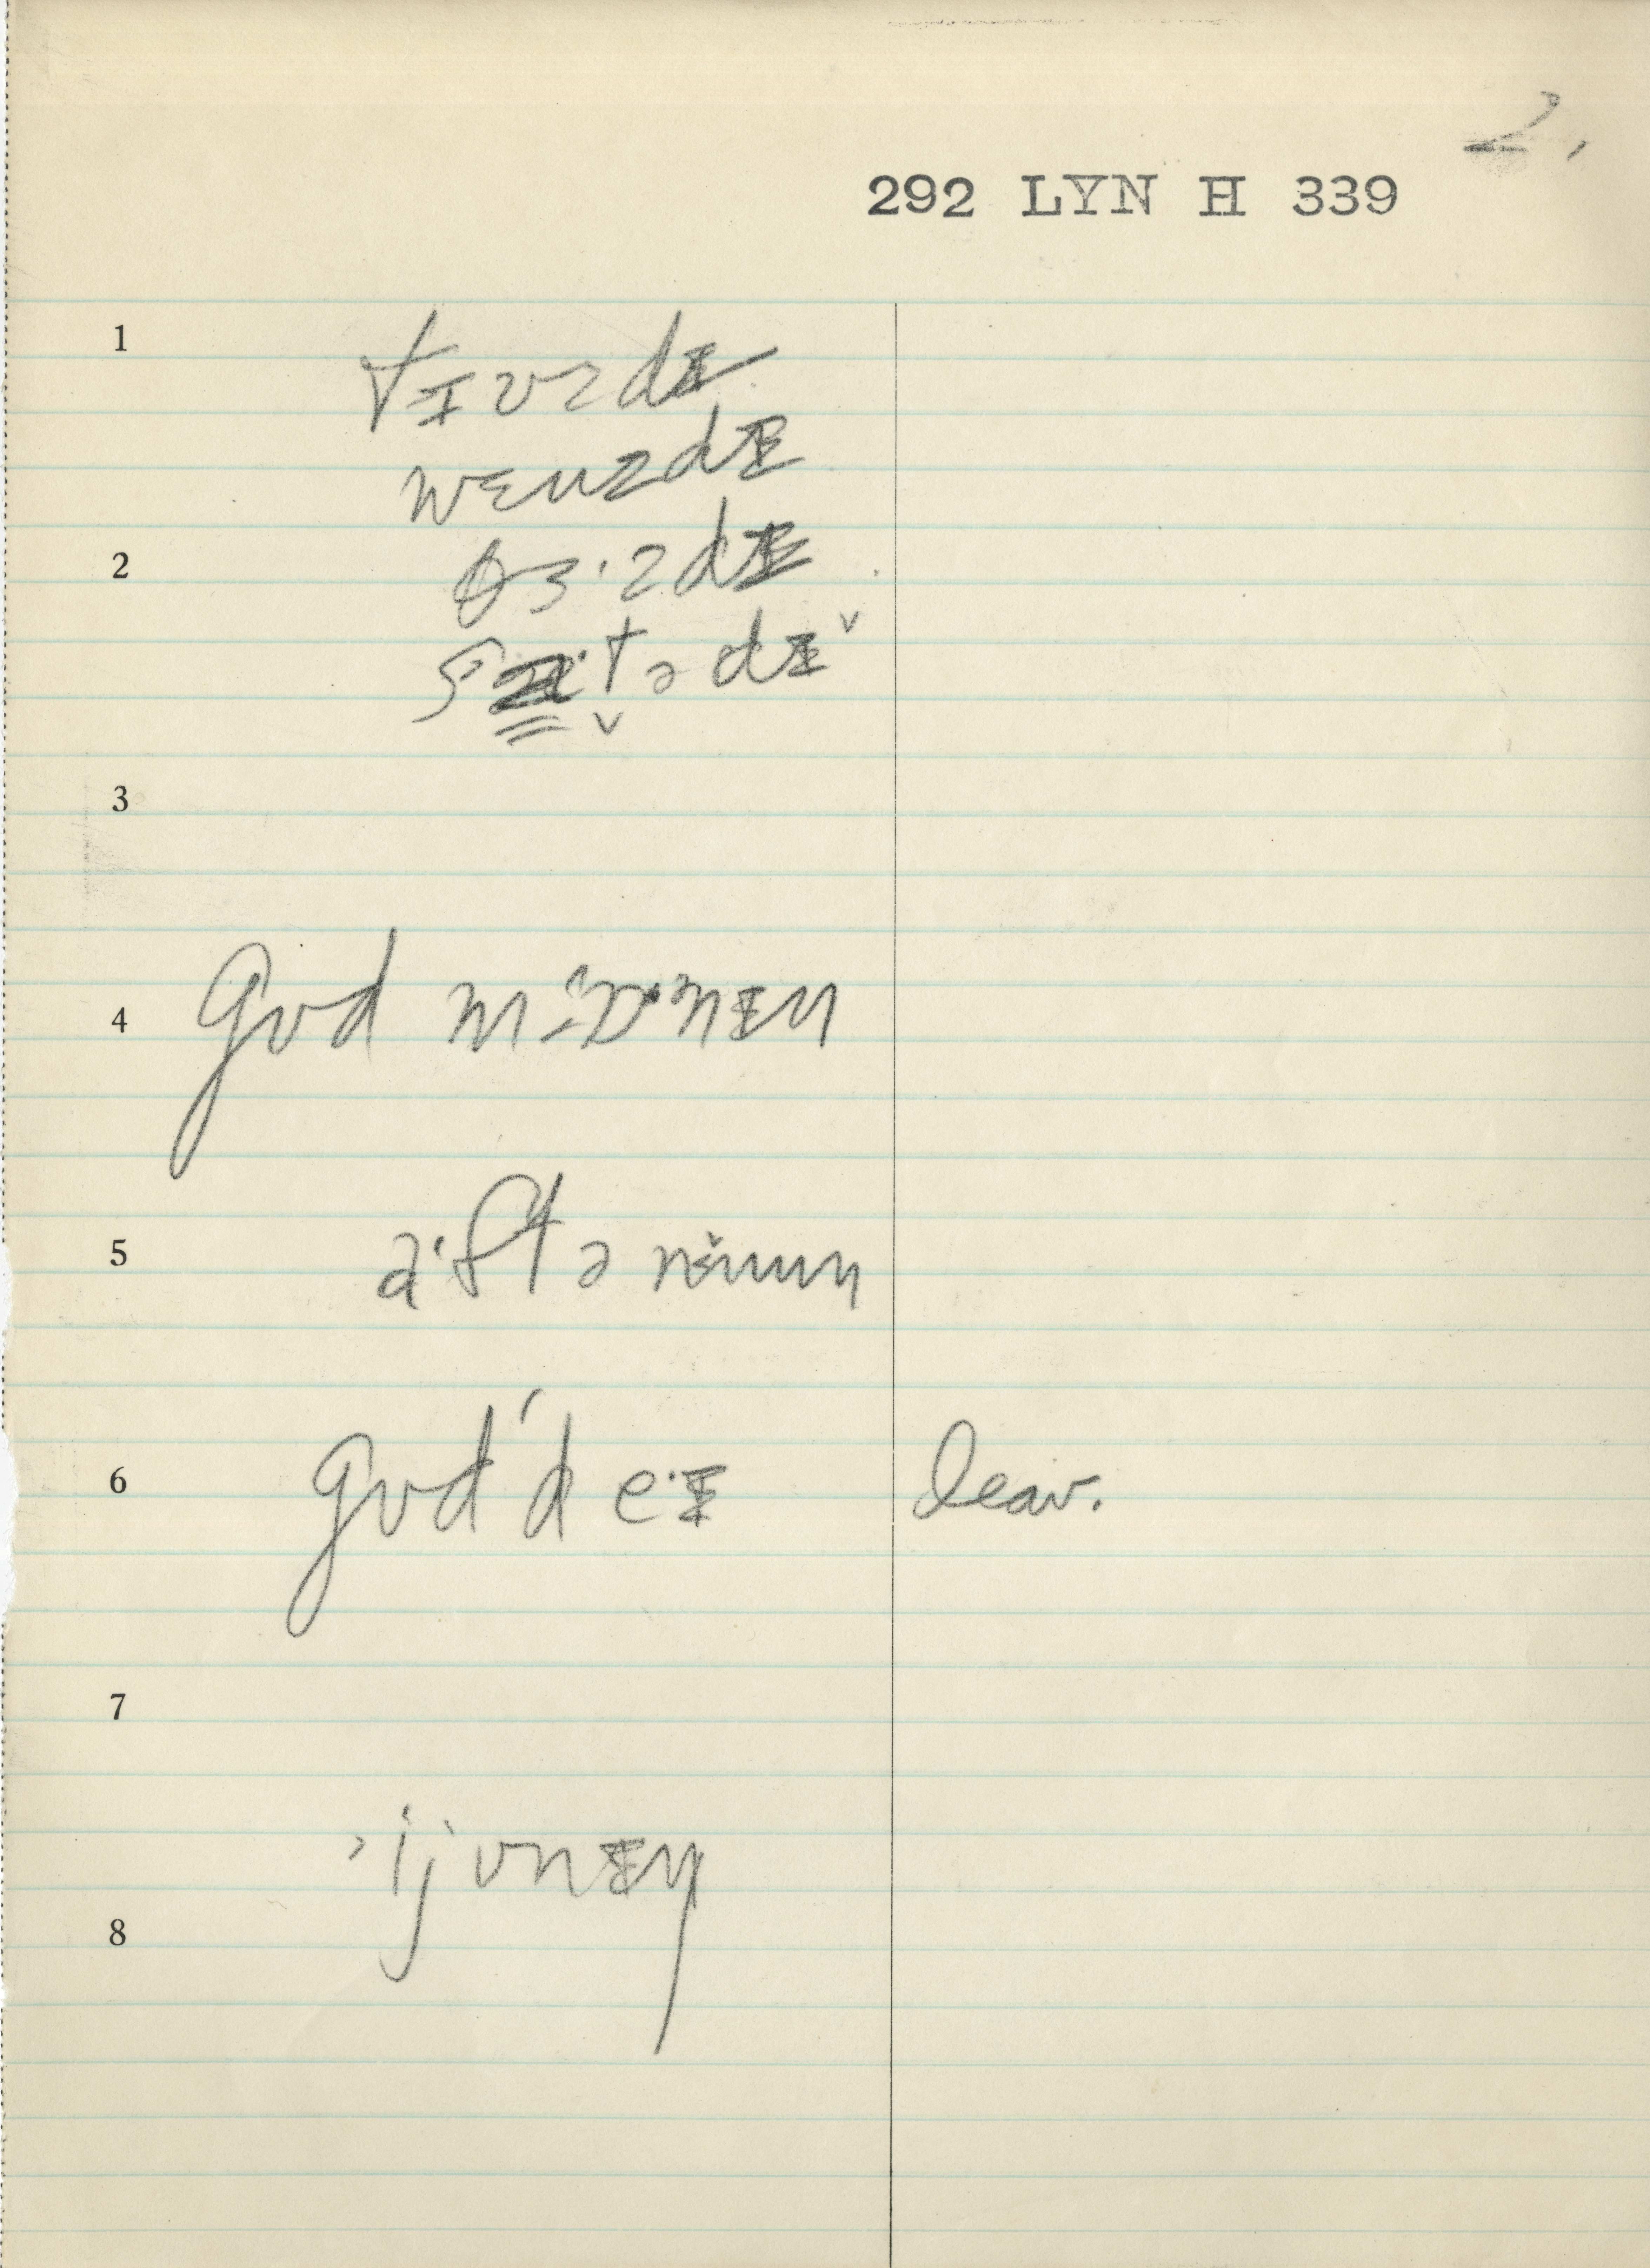 2.
292 LYN H 339
1
tɪʊzdɪ
wɛnzdɪ
2
θɜ·zdɪ
tədɪ̌
3
4 gʊd mɒ·nɪn
5 a·ftənuun
6 gʊd'de·ɪ leav.
7
ijvnɪŋ
8